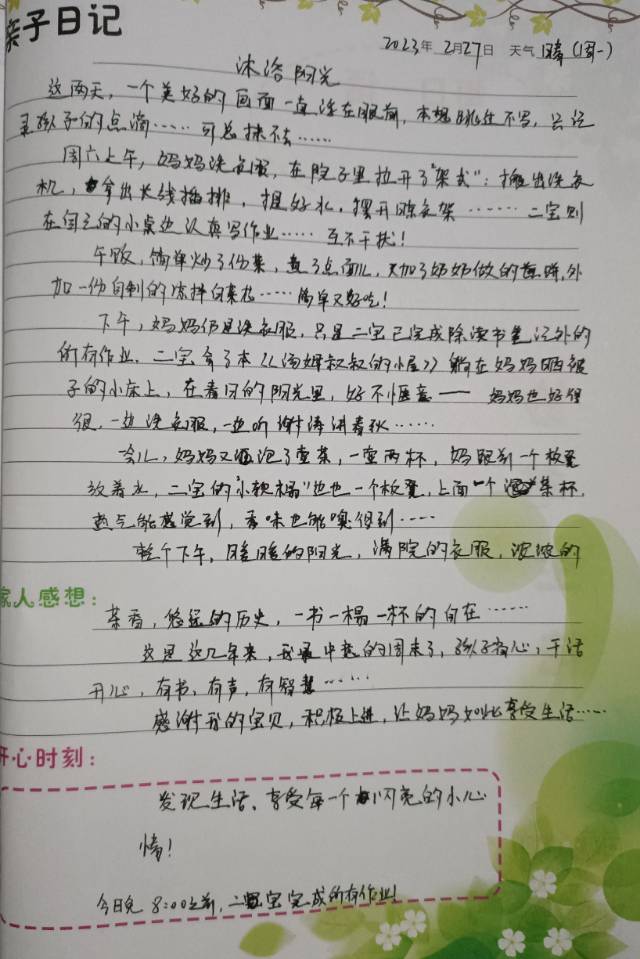 亲子日记
2023年 2月27日 天气 晴 (周一)
沐浴阳光
这两天，一个美好的画面一直浮在眼前，本想跳过不写，只记
录孩子的点滴……可总抹不去……
周六上午，妈妈洗衣服，在院子里拉开了"架式"：搬出洗衣
机，拿出长线插排，提好水，摆开晾衣架……二宝则
在自己的小桌边认真写作业……互不干扰！
午饭，简单炒了份菜，煮了点面儿，又加了奶奶做的 外
加一份自制的凉拌白菜……简单又好吃！
下午，妈妈仍是洗衣服，只是二宝已完成除读书笔记外的
所有作业。二宝拿了本《汤姆叔叔的小屋》躺在妈妈晒被
子的小床上，在春日的阳光里，好不惬意—— 妈妈也好得
很，一边洗衣服，一边听谢涛讲春秋……
会儿，妈妈又泡了壶茶，一壶两杯，妈跟前一个板凳
放着水，二宝的"小软榻"边也一个板凳，上面一个茶杯，
热气能感觉到，香味也能嗅得到……
整个下午，暖暖的阳光，满院的衣服，浓浓的
家人感想：
茶香，悠远的历史，一书一榻一杯的自在……
这是这几年来，我最中意的周末了，孩子省心，干活
开心，有书，有声，有智慧……
感谢我的宝贝，积极上进，让妈妈如此享受生活……
开心时刻：
发现生活、享受每一个闪亮的小心
情！
今日晚 8:00之前，二宝完成所有作业！